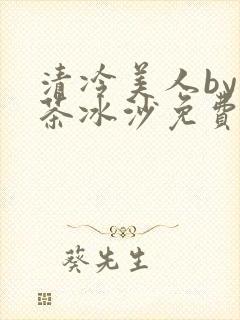 清冷美人by
茶冰沙免費
葵先生